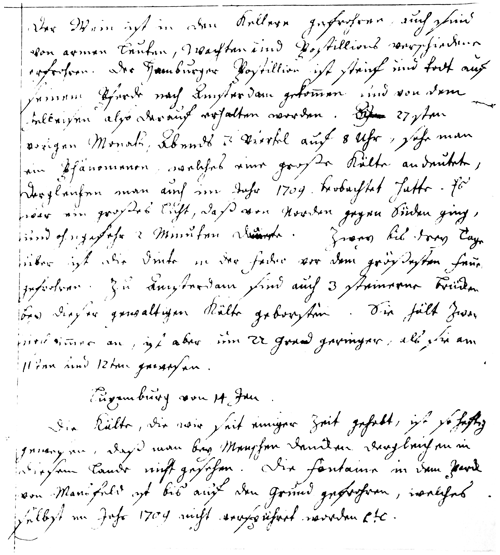 Der Wein ist in den Kellern gefrohren, auch sind
von armen Leuten, Wachten und Postillions verschiedene
erfrohren. Der Hamburger Postillion ist steif und todt auf
seinem Pferde nach Amsterdam gekommen und von dem
also darauf erhalten worden. Den 27sten
vorigen Monats, Abends 3 Viertel auf 8 Uhr, sahe man
ein Phänomenon, welches eine große Kälte andeutete,
dergleichen man auch im Jahr 1709 beobachtet hatte. Es
war ein großes Licht, daß von Norden gegen Süden ging,
und ohngefehr 2 Minuten daurte. Zwey bis drey Tage
über ist die Dinte in der Feder vor dem größesten Feuer
gefrohren. Zu Amsterdam sind auch 3 steinerne Brücken
bey dieser gewaltigen Kälte geborsten. Sie hält zwar
noch immer an, ist aber um 22 Grad geringer, als sie am
11ten und 12ten gewesen.
Luxemburg von 14 Jan.
Die Kälte, die wir seit einiger Zeit gehabt, ist so heftig
gewesen, daß man bey Menschen Denken dergleichen in
diesem Lande nicht gesehen. Die Fontaine in dem Park
von Mansfeld ist bis auf den Grund gefrohren, welches
selbst im Jahr 1709 nicht verspühret worden etc.